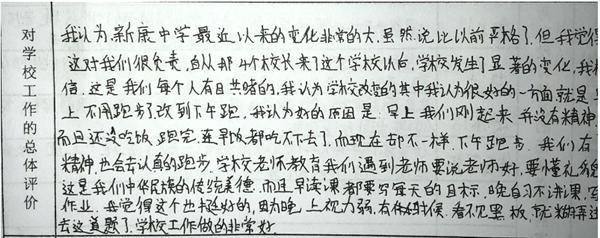 对学校工作的总体评价
我认为新康中学最近以来的变化非常的大.虽然说比以前严格了.但我觉得
这对我们很负责,自从那4个校长来了这个学校以后,学校发生了显著的变化,我相
信.这是我们每个人有目共睹的.我认为学校改变的其中我认为很好的一方面就是早
上不用跑步了改到下午跑.我认为好的原因是.早上我们刚起来.并没有精神
而且还没吃饭.跑完.连早饭都吃不下去了.而现在却不一样.下午跑步.我们有
精神.也会去认真的跑步.学校老师教育我们遇到老师要说老师好.要懂礼貌
这是我们中华民族的传统美德.而且早读课都要写每天的目标.晚自习不讲课.写
作业.我觉得这个也挺好的.因为晚上视力弱.有什么时候.看不见黑板.就
去这道题了.学校工作做的非常好.